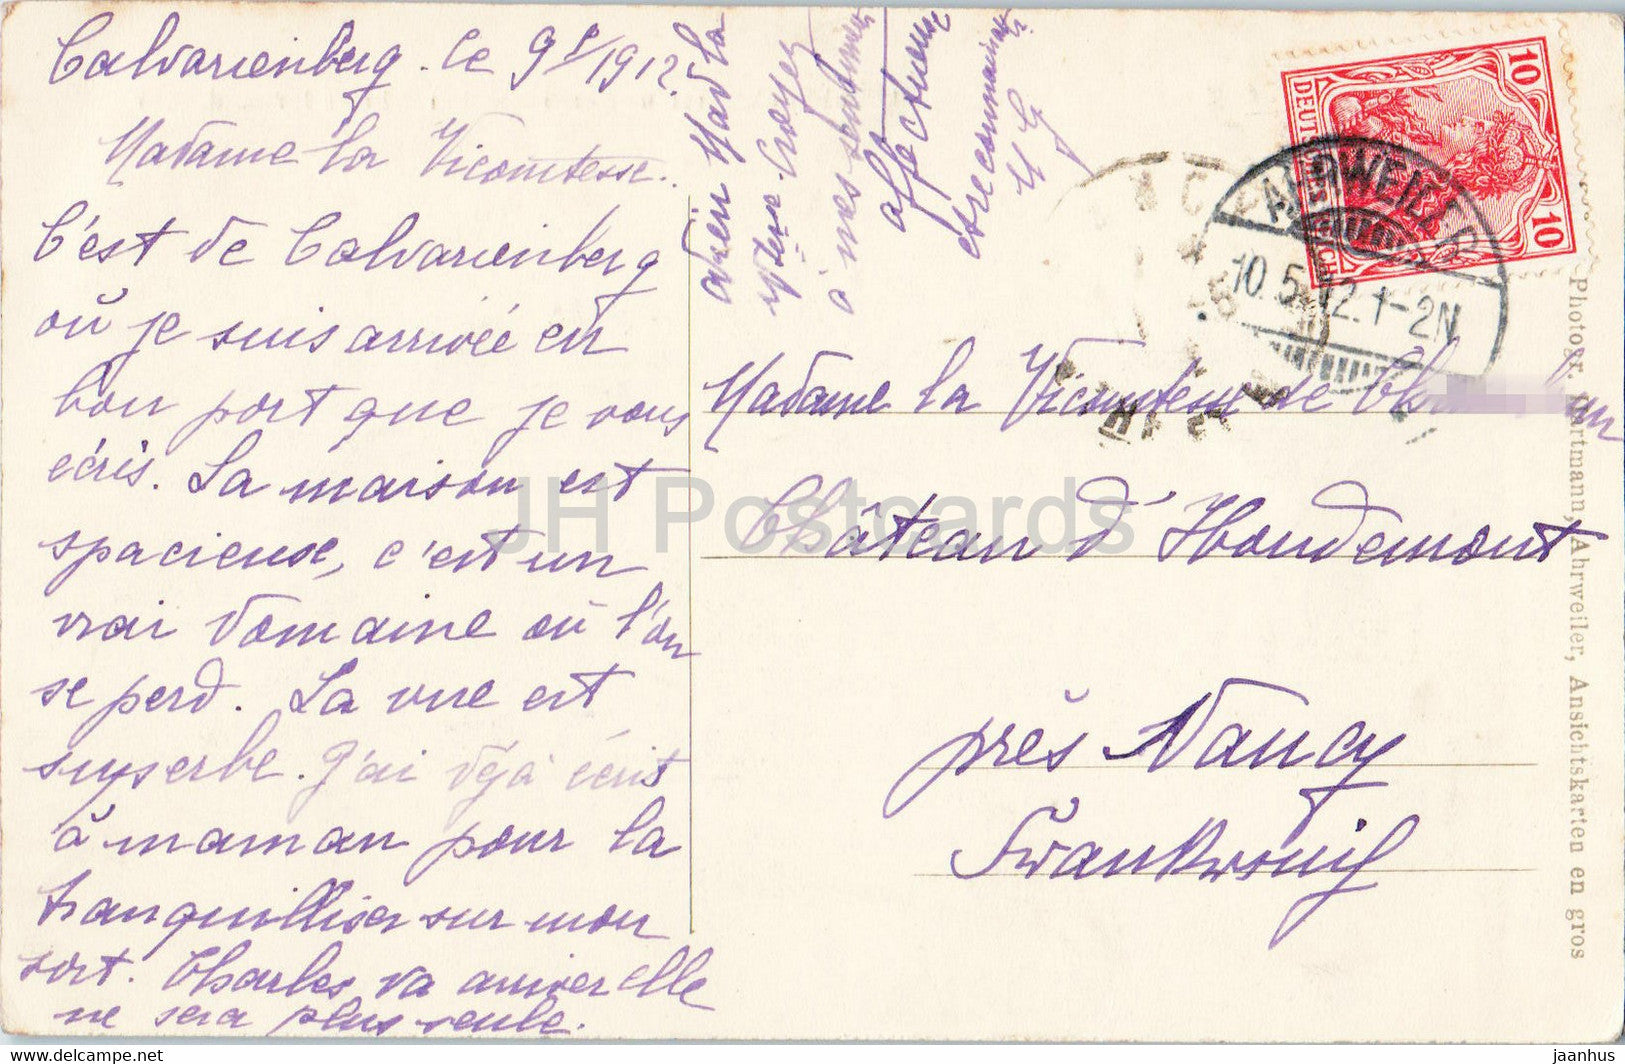 Calvarienberg. le 9 5/1912.
Madame la Vicomtesse.
C'est de Calvarienberg
où je suis arrivée en
bon port que je vous
écris. La maison est
spacieuse, c'est un
vrai domaine où l'on
se perd. La vue est
superbe. J'ai déjà écrit
à maman pour la
tranquilliser sur mon
sort. Charles va arriver elle
ne sera plus seule.
adieu Mad la
Vtesse croyez
à mes sentiments
affectueux
et reconnaissants
M G
DEUTSCHES REICH
10
10
AHRWEILER
10.5.12.1-2N
Madame la Vicomtesse de
Château d'Houdemont
près Nancy
Frankreich
Photogr. Hartmann, Ahrweiler, Ansichtskarten en gros
JH Postcards
hippostcard.com
jaanhus